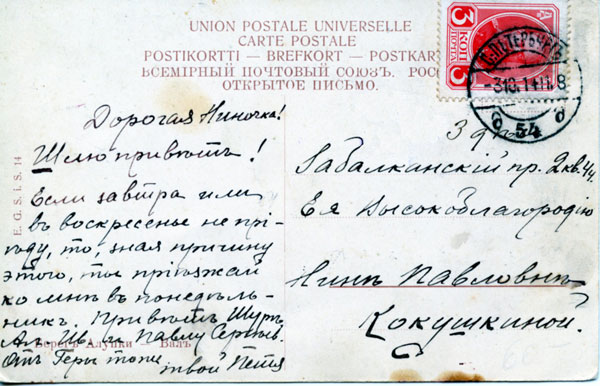 UNION POSTALE UNIVERSELLE
CARTE POSTALE
POSTIKORTTI — BREFKORT — POSTKAR
ВСЕМІРНЫЙ ПОЧТОВЫЙ СОЮЗЪ. РОСС
ОТКРЫТОЕ ПИСЬМО.
3 КОП 3
ПОЧТА
С.ПЕТЕРБУРГЪ
-3 10.14 11. 8
6 54 д
E. G. S. i. S. 14
Дорогая Ниночка!
Шлю привѣтъ!
Если завтра или
въ воскресенье не прі-
ѣду, то, зная причину
этого, ты пріѣзжай
ко мнѣ въ понедѣль-
никъ. Привѣтъ Шурѣ
Ал. Ив. Павлу Сергѣев.
Отъ Геры тоже
твой Петя
Берегъ Алупки — Видъ
Здѣсь
Забалканскій пр. 2 кв. 44
Ея Высокоблагородію
Нинѣ Павловнѣ
Кокушкиной.